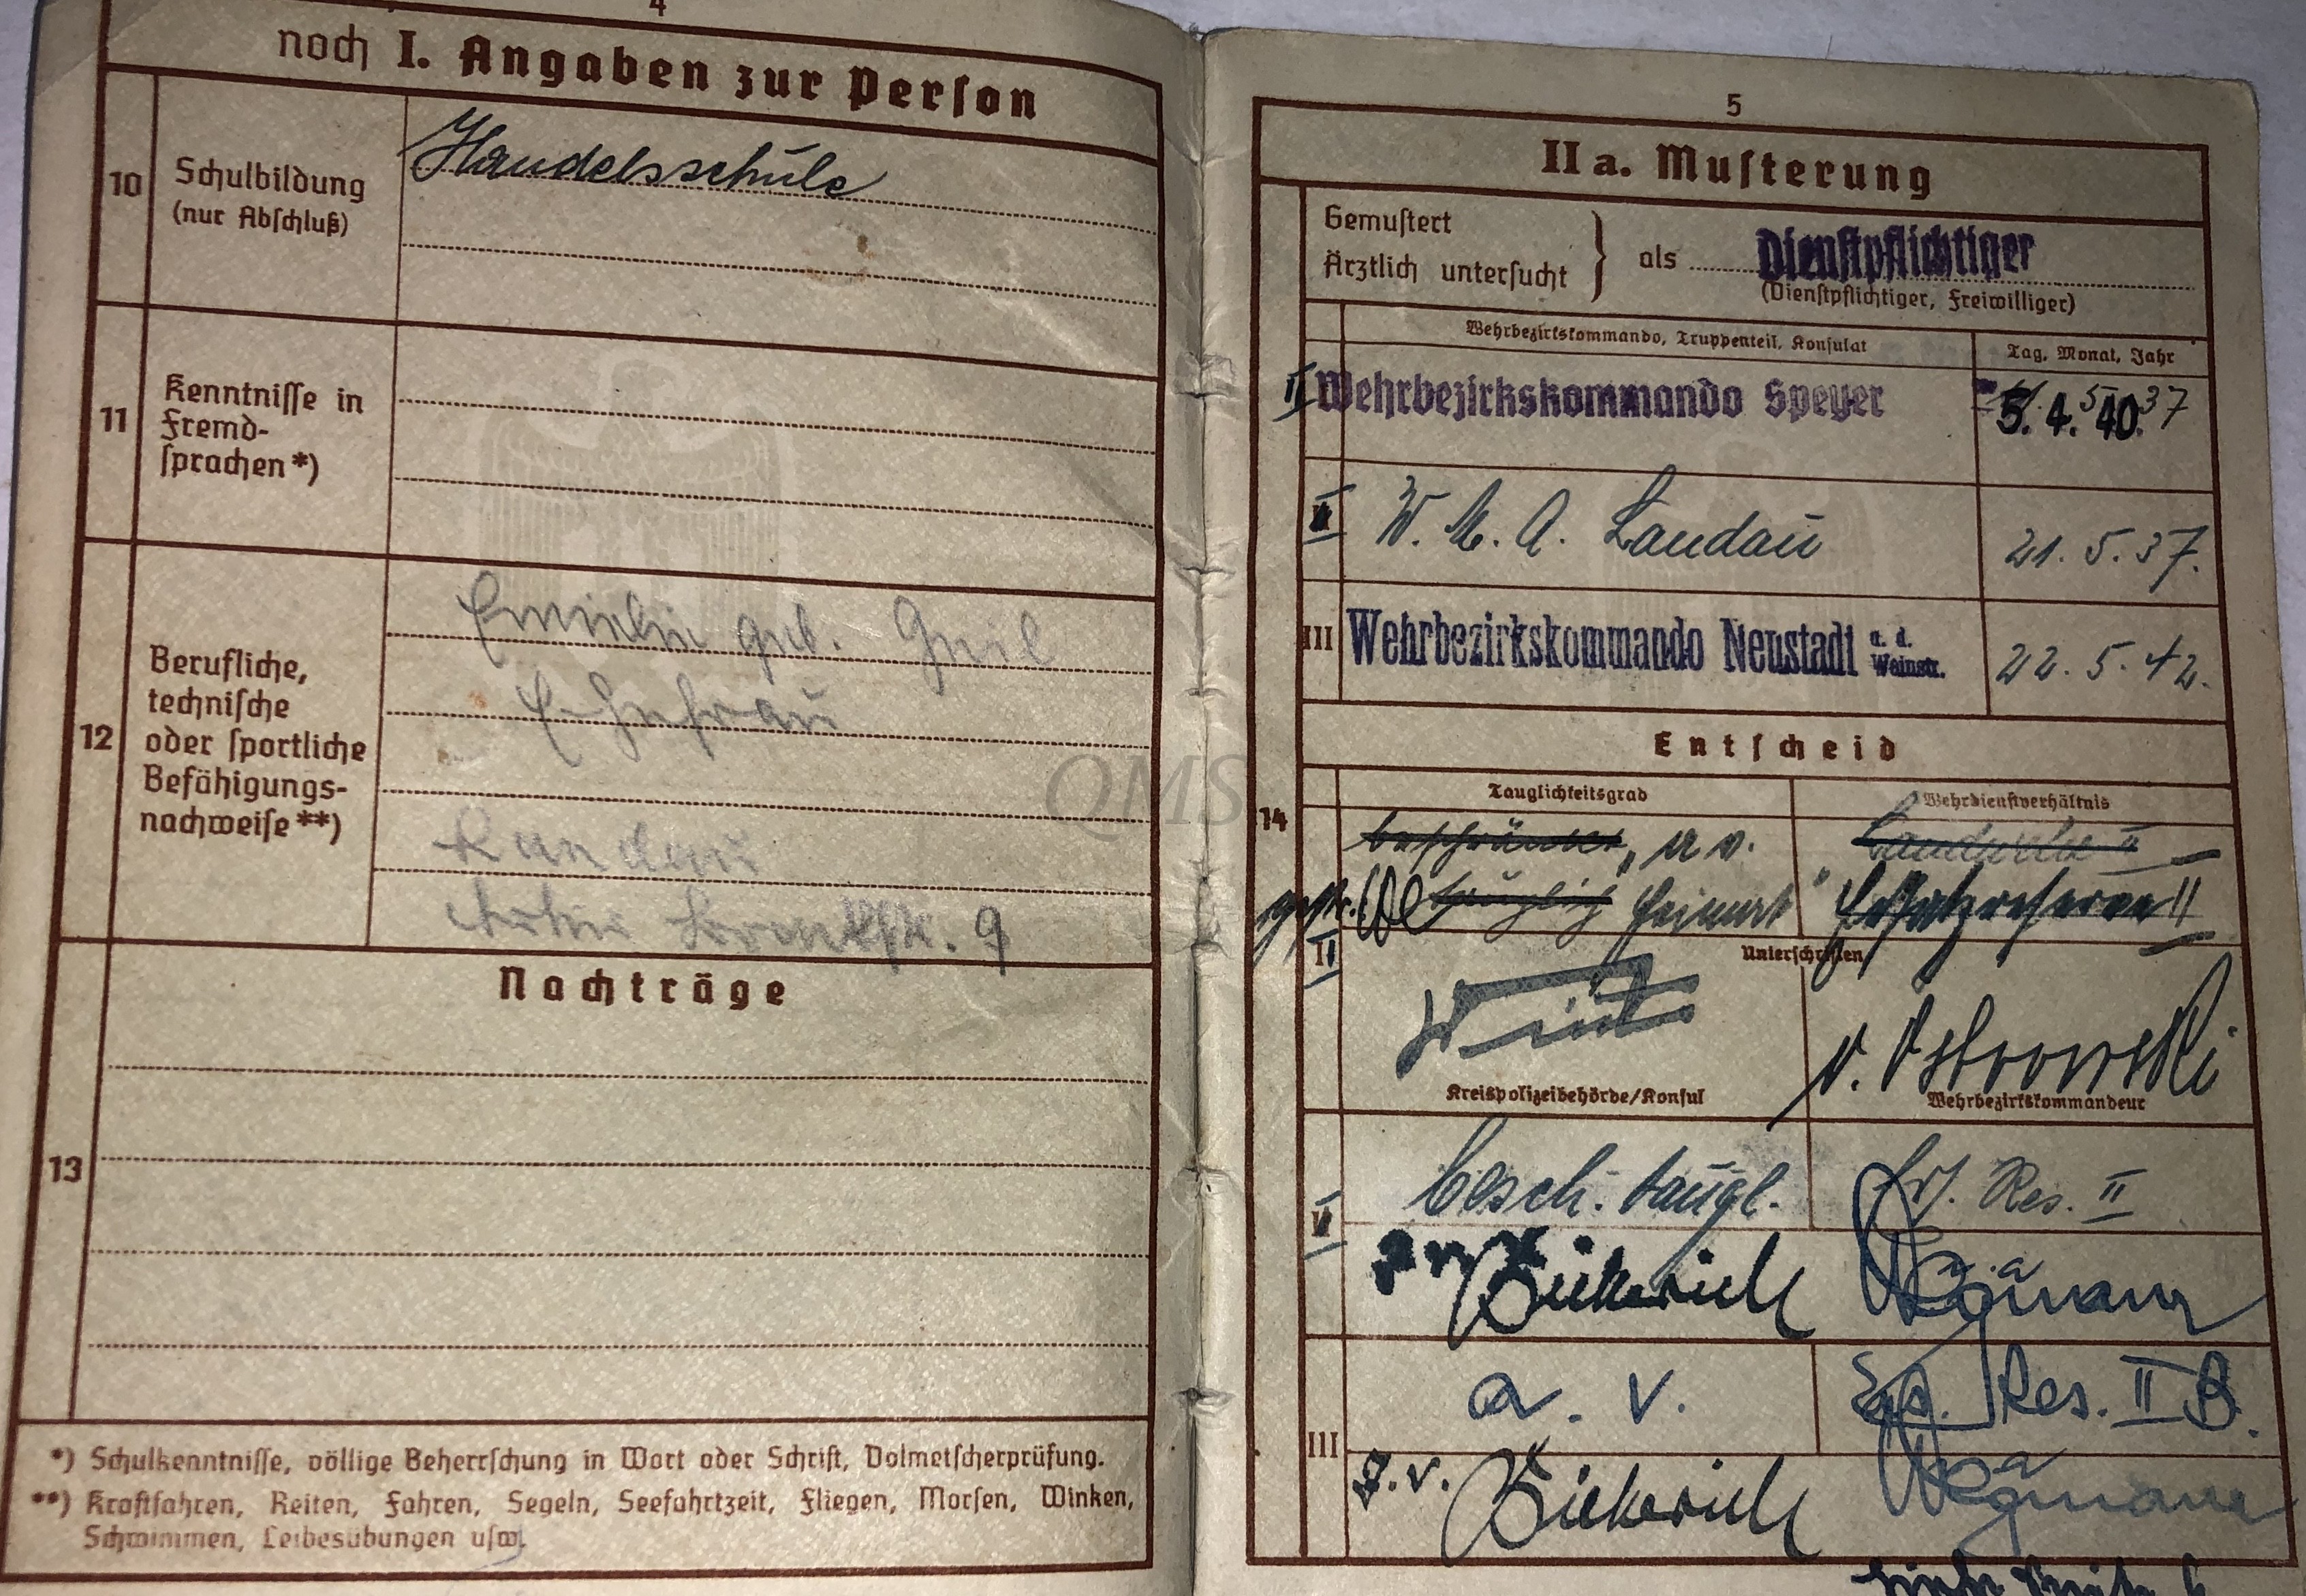 4
noch I. Angaben zur Person
10
Schulbildung
(nur Abschluß)
Handelsschule
11
Kenntnisse in
Fremd-
sprachen *)
12
Berufliche,
technische
oder sportliche
Befähigungs-
nachweise **)
geb.
Ehefrau
Landau
9
Nachträge
13
*) Schulkenntnisse, völlige Beherrschung in Wort oder Schrift, Dolmetscherprüfung.
**) Kraftfahren, Reiten, Fahren, Segeln, Seefahrtzeit, Fliegen, Morsen, Winken,
Schwimmen, Leibesübungen usw.
QMS
5
II a. Musterung
Gemustert
Ärztlich untersucht
als Dienstpflichtiger
(Dienstpflichtiger, Freiwilliger)
Wehrbezirkskommando, Truppenteil, Konsulat
Tag, Monat, Jahr
II Wehrbezirkskommando Speyer 5. 4. 40.
W. M. A. Landau 21. 5. 37.
III Wehrbezirkskommando Neustadt a. d. Weinstr. 22. 5. 42.
Entscheid
14
Tauglichkeitsgrad
Wehrdienstverhältnis
beschränkt „ g. v.
tauglich Heimat" Ersatzreserve II
II
Unterschriften
v. Ostrowski
Kreispolizeibehörde/Konsul
Wehrbezirkskommandeur
besch. taugl. Ers. Res. II
a. v. Ers. Res. II B.
III
J. V.